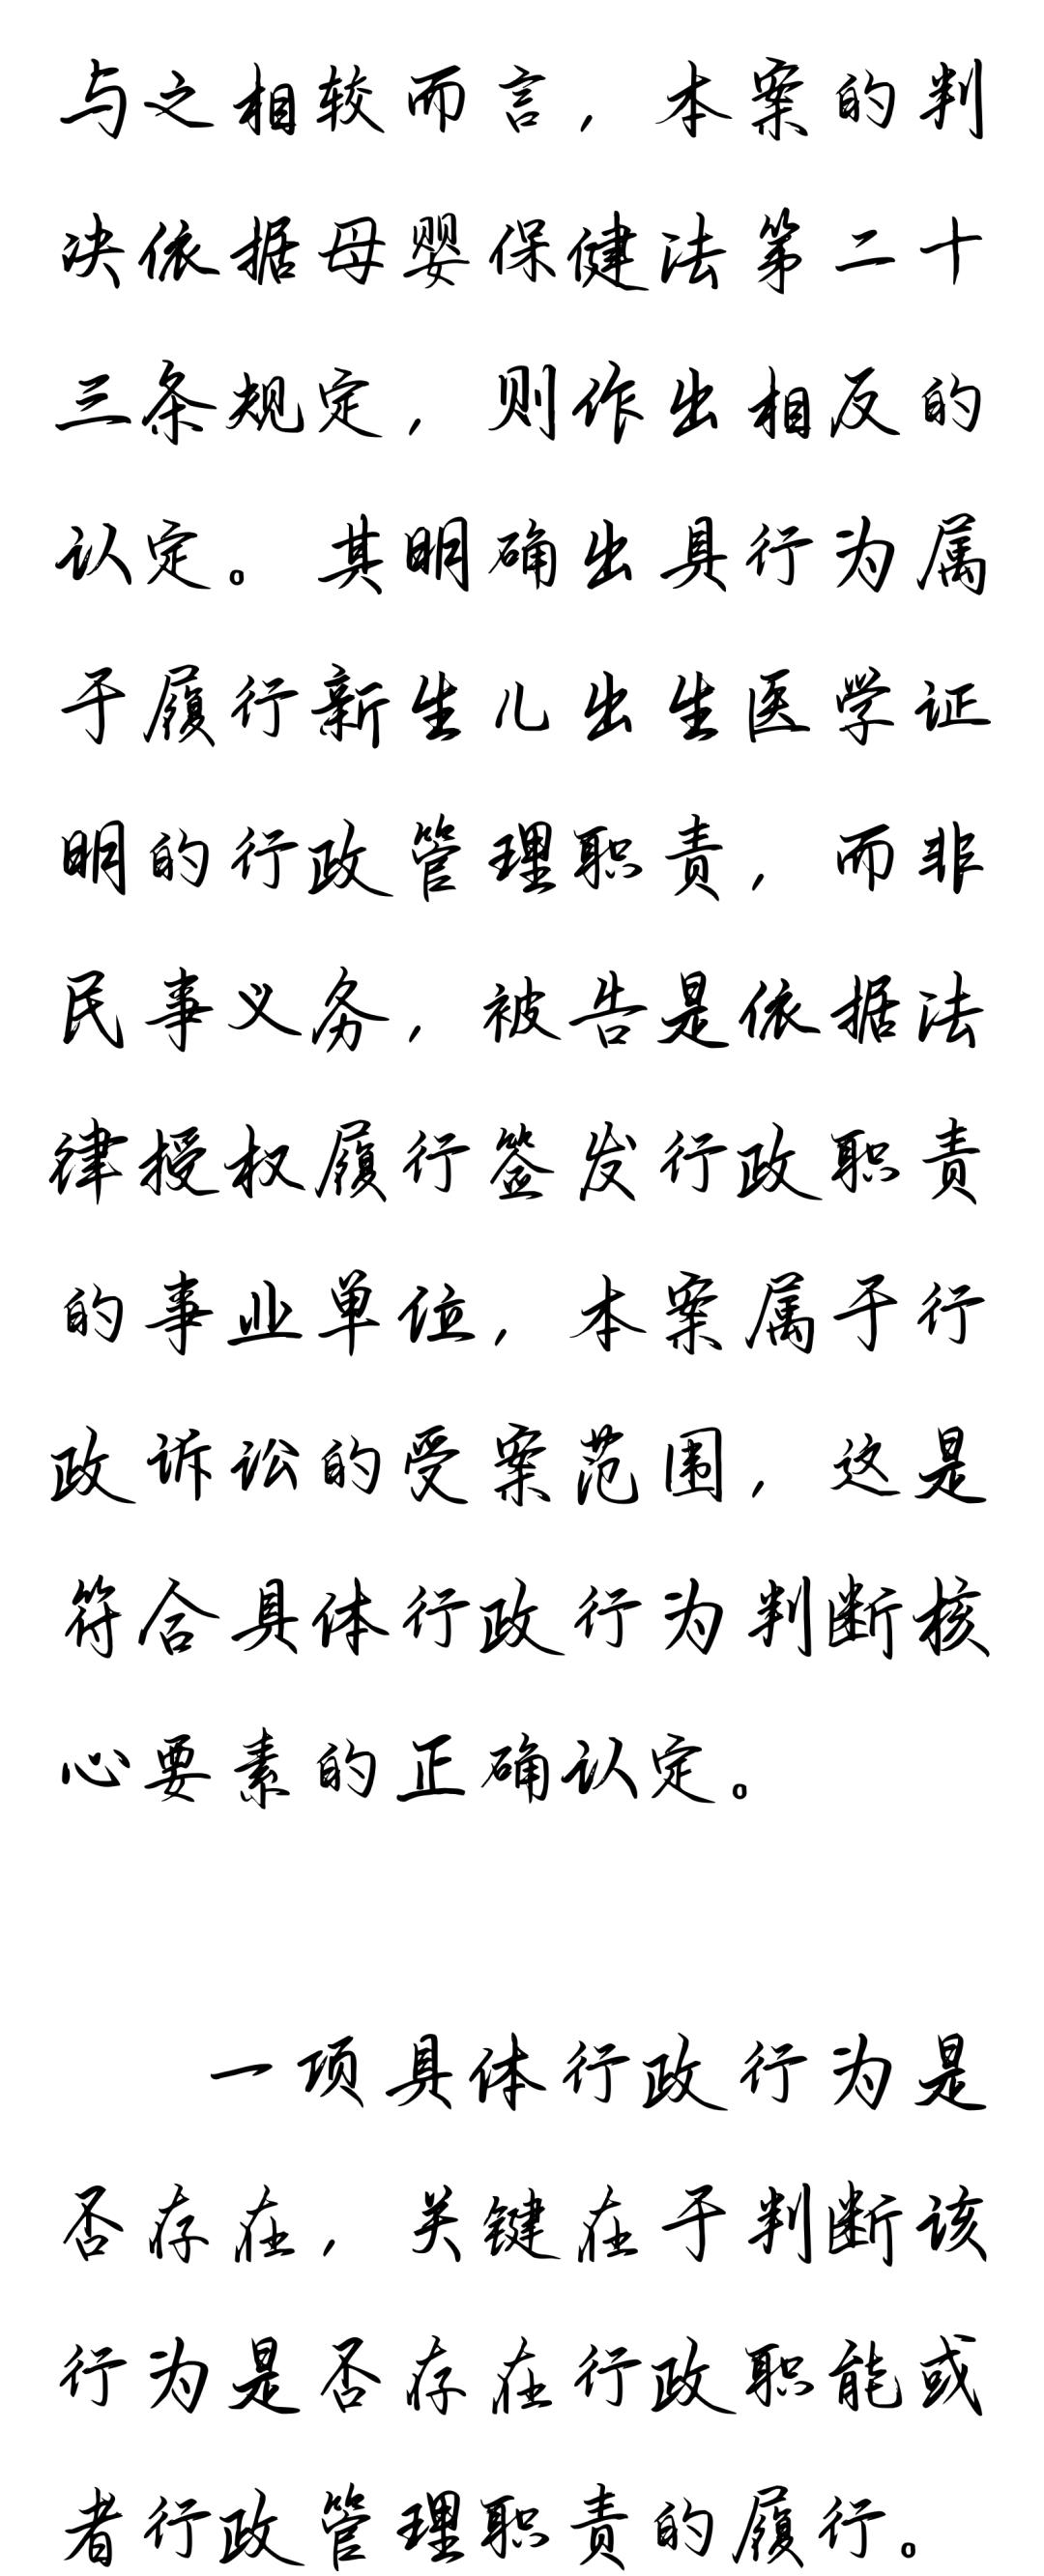 与之相较而言，本案的判
决依据母婴保健法第二十
三条规定，则作出相反的
认定。其明确出具行为属
于履行新生儿出生医学证
明的行政管理职责，而非
民事义务，被告是依据法
律授权履行签发行政职责
的事业单位，本案属于行
政诉讼的受案范围，这是
符合具体行政行为判断核
心要素的正确认定。
一项具体行政行为是
否存在，关键在于判断该
行为是否存在行政职能或
者行政管理职责的履行。